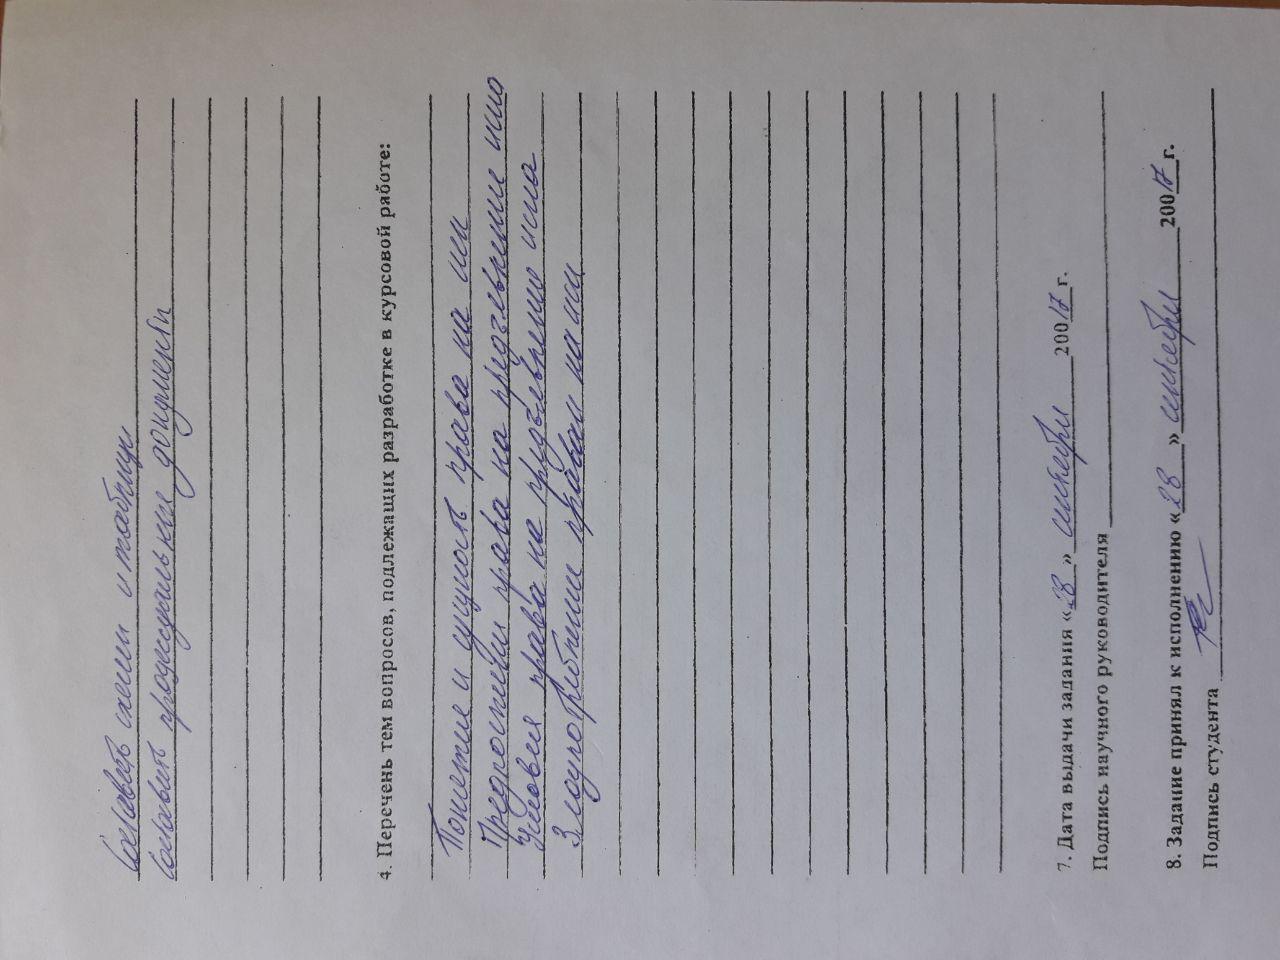 Составить схемы и таблицы
Составить процессуальные документы
4. Перечень тем вопросов, подлежащих разработке в курсовой работе:
Понятие и сущность права на иск
Предпосылки права на предъявление иска
Условия права на предъявление иска
Злоупотребление правом на иск
7. Дата выдачи задания «28» сентября 2017 г.
Подпись научного руководителя
8. Задание принял к исполнению «28» сентября 20017 г.
Подпись студента